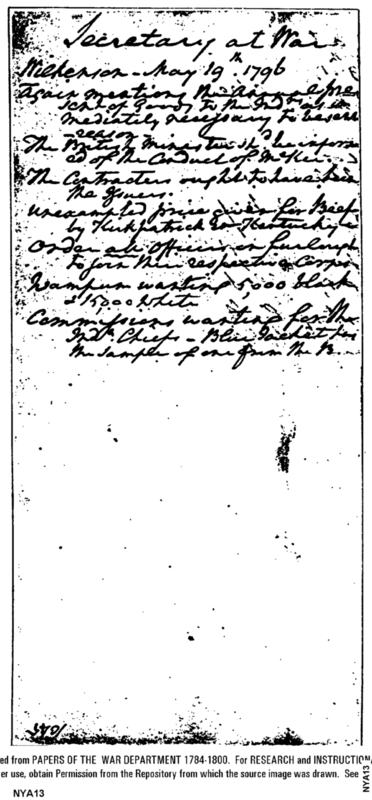 Secretary at War
Wilkinson - May 19th. 1796
Again mentions the Annual pre
sent of Goods to the Inds. as im
mediately necessary to be sent
The British Minister shd. be inform
ed of the Conduct of McKee
The Contractors ought to have been
the
unexampled price given for Beef
by Kirkpatrick in Kentucky
Order all Officers on furlough
to join their respective Corps
Wampum wanting 5,000 black
& 15,000 white
Commissions wanting for the
Indn. Chiefs - Blue Jacket has
the sample of one from the B
ed from PAPERS OF THE WAR DEPARTMENT 1784-1800. For RESEARCH and INSTRUCTIO
er use, obtain Permission from the Repository from which the source image was drawn. See
NYA13
NYA13